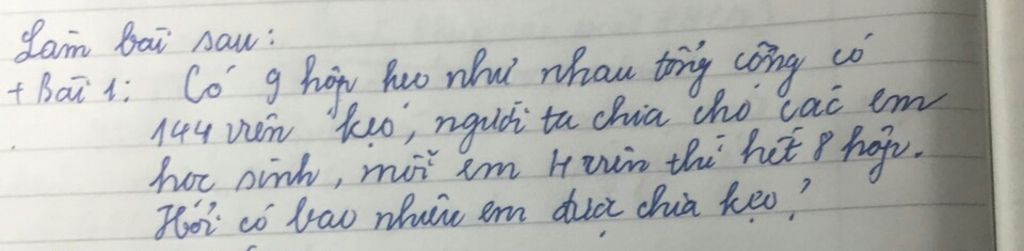 Làm bài sau:
+ Bài 1: Có 9 hộp kẹo như nhau tổng cộng có
144 viên kẹo, người ta chia cho các em
học sinh, mỗi em 4 viên thì hết 8 hộp.
Hỏi có bao nhiêu em được chia kẹo?